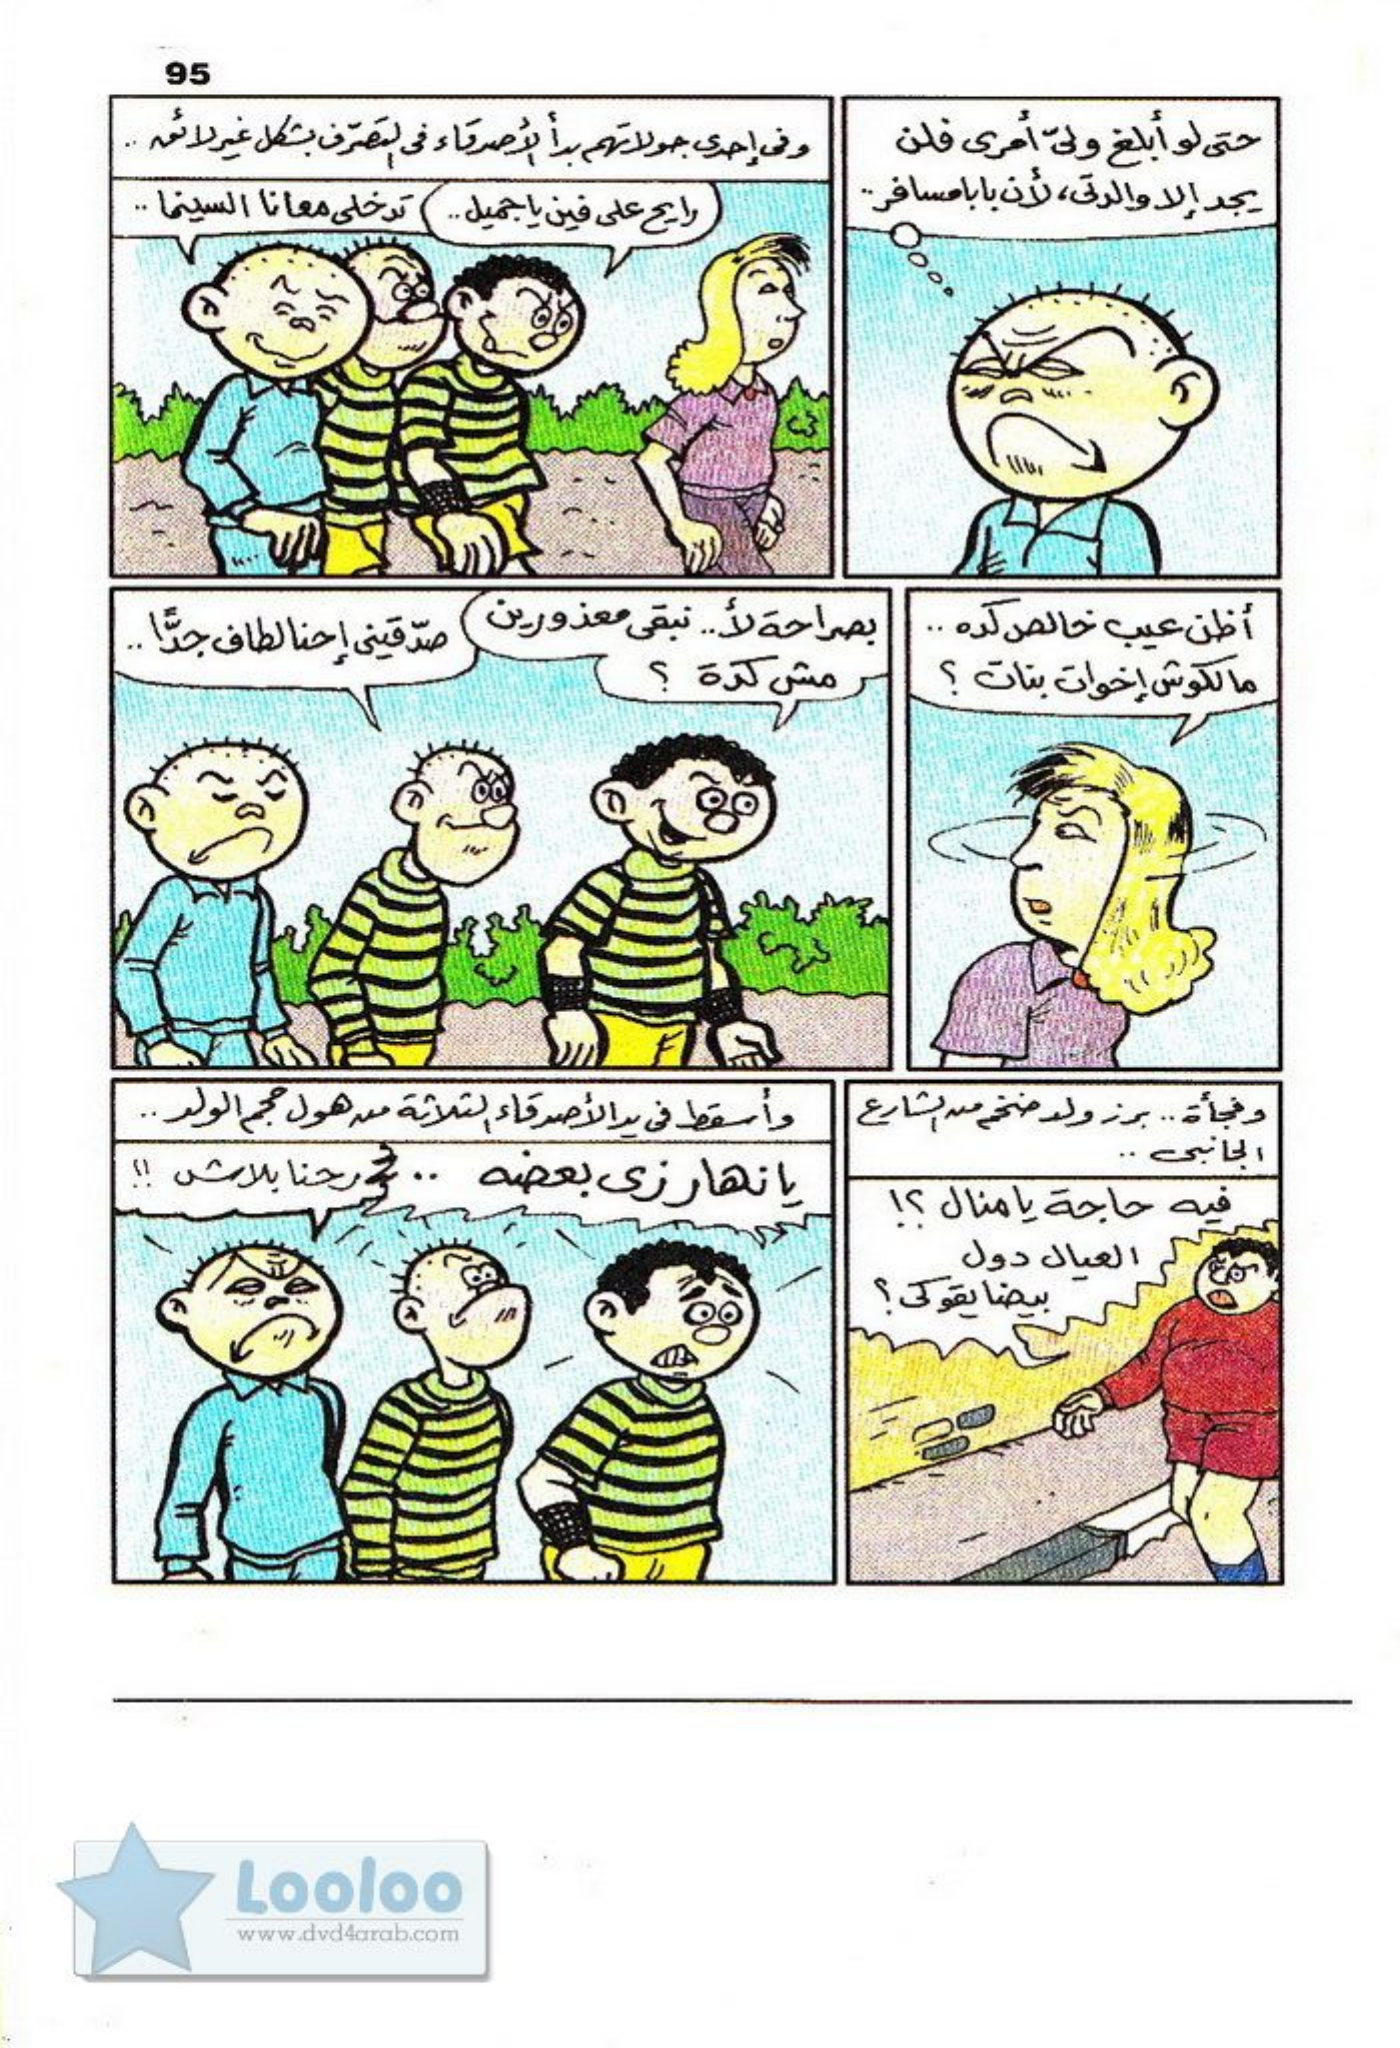 95
حتى لو أبلغ ولىّ أمرى فلن
يجد إلا والدتى، لأن بابا مسافر..
وفى إحدى جولاتهم بدأ الأصدقاء فى التصرّف بشكل غير لائق ..
رايح على فين يا جميل..
تدخلى معانا السينما ..
أظن عيب خالص كده ..
مالكوش إخوات بنات ؟
بصراحة لأ.. نبقى معذورين
مش كدة ؟
صدّقينى إحنا لطاف جدًّا ..
وفجأة.. برز ولد ضخم من الشارع
الجانبى ..
فيه حاجة يا منال ؟!
العيال دول
بيضايقوكى ؟
وأسقط فى يد الأصدقاء الثلاثة من هول حجم الولد ..
يا نهار زى بعضه ..
رحنا بلاش !!
Looloo
www.dvd4arab.com